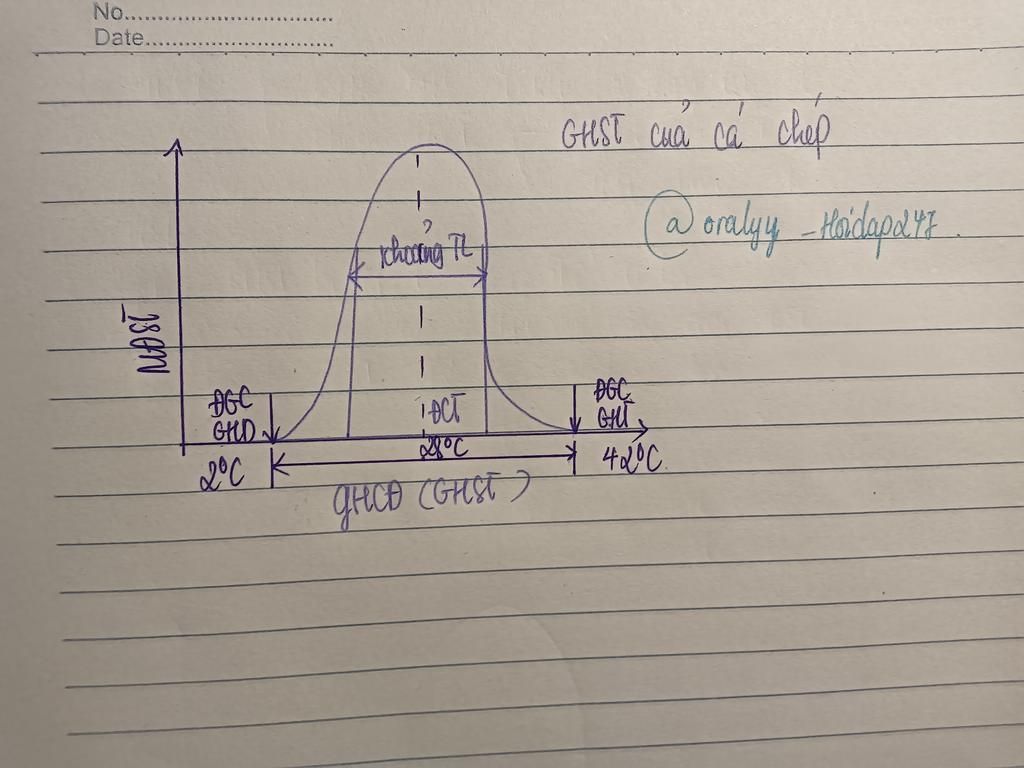 No...............................
Date............................
GHST của cá chép
@oralyy_Hoidap247.
khoảng TL
MĐST
ĐGC
GHD
ĐCT
ĐGC
GHT
28°C
2°C
42°C.
GHCĐ (GHST)